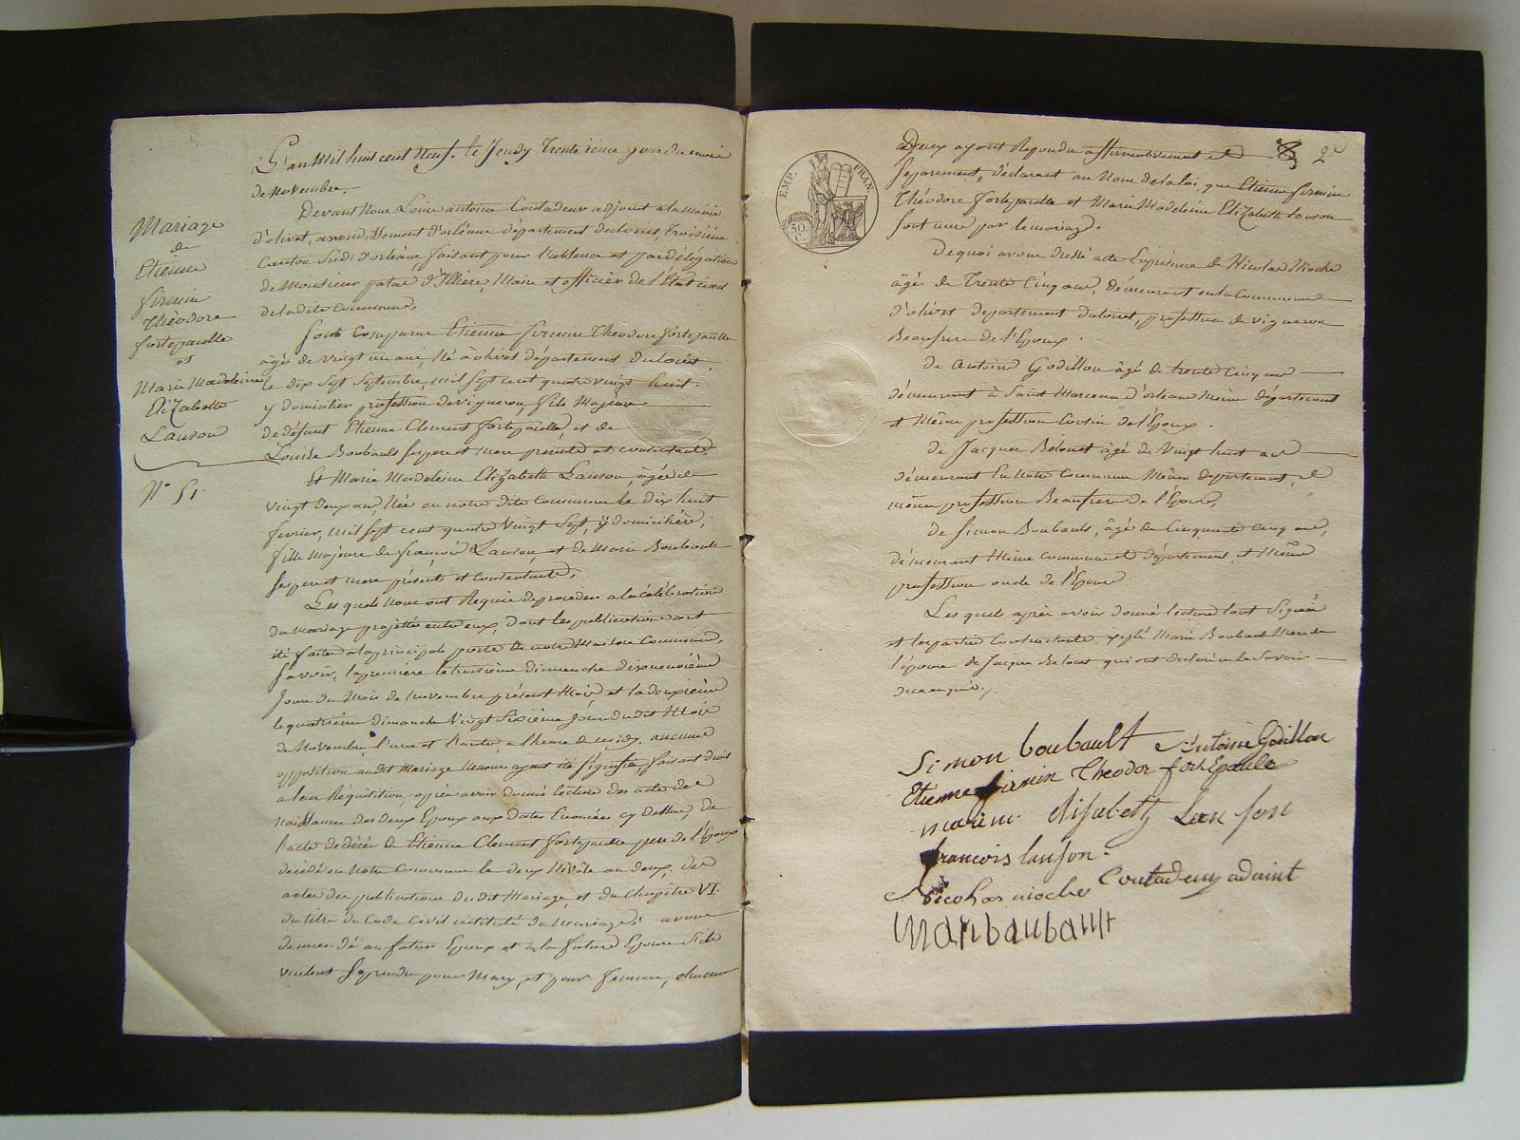 L'an Mil huit cent Neuf, le Jeudy Trentieme jour du mois
de Novembre.
Devant Nous Louis antoine Contadeur adjoint a la Mairie
d'olivet, arrondissement d'orléans département du Loiret, troisieme
Canton Sud d'orléans faisant pour l'absence et par délégation
de Monsieur
Maire et officier de l'État civil
de la dite Commune,
Mariage
de
Etienne
firmin
Théodore
fortepaulle
et
Marie Madeleine
EliZabeth
Lanson
N° 51.
Sont Comparus Etienne firmin Théodore fortepaulle
âgé de vingt un ans, Né à olivet département du Loiret,
le dix Sept Septembre, mil sept cent quatre vingt huit
y domicilier profession de vigneron, fils Majeur
de défunt Etienne Clement fortepaulle, et de
Louise Boubault ses pere et mere presente et consentante,
Et Marie Madeleine Elizabeth Lanson, âgée de
vingt deux ans, Née en notre dite Commune le dix huit
fevrier, mil sept cent quatre Vingt Sept, y domiciliée,
fille Majeure de françois Lanson, et de Marie Boubault
ses pere et mere présents et Consentants,
Les quels Nous ont Requis de proceder a la célébration
du Mariage projetté entre eux, dont les publications ont
été faites a la principale porte de notre Maison Commune,
Savoir, la premiere le troisieme dimanche dixneuvième
Jour du Mois de Novembre présent Mois, et la deuxième
le quatrième dimanche Vingt Sixième jour dudit Mois
de Novembre, l'une et l'autre, a l'heure de midy, aucune
opposition au dit Mariage Ne nous ayant été Signifiée, faisant droit
a leur Requisition, après avoir donné lecture des actes de
Naissance des deux Epoux aux dates Enoncées cy dessus, de
l'acte de décès de Etienne Clement fortepaulle pere de l'Epoux
décédé en Notre Commune le deux Nivôse an deux, des
actes des publications du dit Mariage, et du Chapitre VI.
du titre du Code Civil intitulé du Mariage, avons
demandé au futur Epoux et à la future Epouse s'ils
veulent se prendre pour Mary, et pour femme, chacun
2e
EMP. FRAN.
50
d'eux ayant Repondu affirmativement et
séparement, déclarant au Nom de la loi, que Etienne firmin
Théodore fortepaulle et Marie Madeleine EliZabeth Lanson
sont unis par le mariage.
De quoi avons dressé acte En présence de Nicolas Nioche
âgé de Trente Cinq ans, demeurant en la Commune
d'olivet departement du Loiret, profession de vigneron
Beaufrere de l'Epoux.
de Antoine Godillon âgé de trente Cinq ans
demeurant à Saint Marceau d'orleans Même département
et Même profession Cousin de l'Epoux.
de Jacques Belouet âgé de Vingt huit ans
demeurant En Notre Commune Même departement, et
même profession Beaufrere de l'Epouse,
de Simon Boubault, âgé de Cinquante Cinq ans,
demeurant Même Commune et département, et Même
profession oncle de l'Epoux
Les quels après avoir donné lecture l'ont Signés
et les parties Contractantes, excepté Marie Boubault Mere de
l'épouse et Jacques Belouet qui ont declaré ne le Savoir
de ce enquis.
Simon boubault Antoine Godillon
Etienne firmin Theodor fortEpaule
marie elisabeth Lan son
francois lanson.
Nicolas nioche Contadeur adjoint
boubault